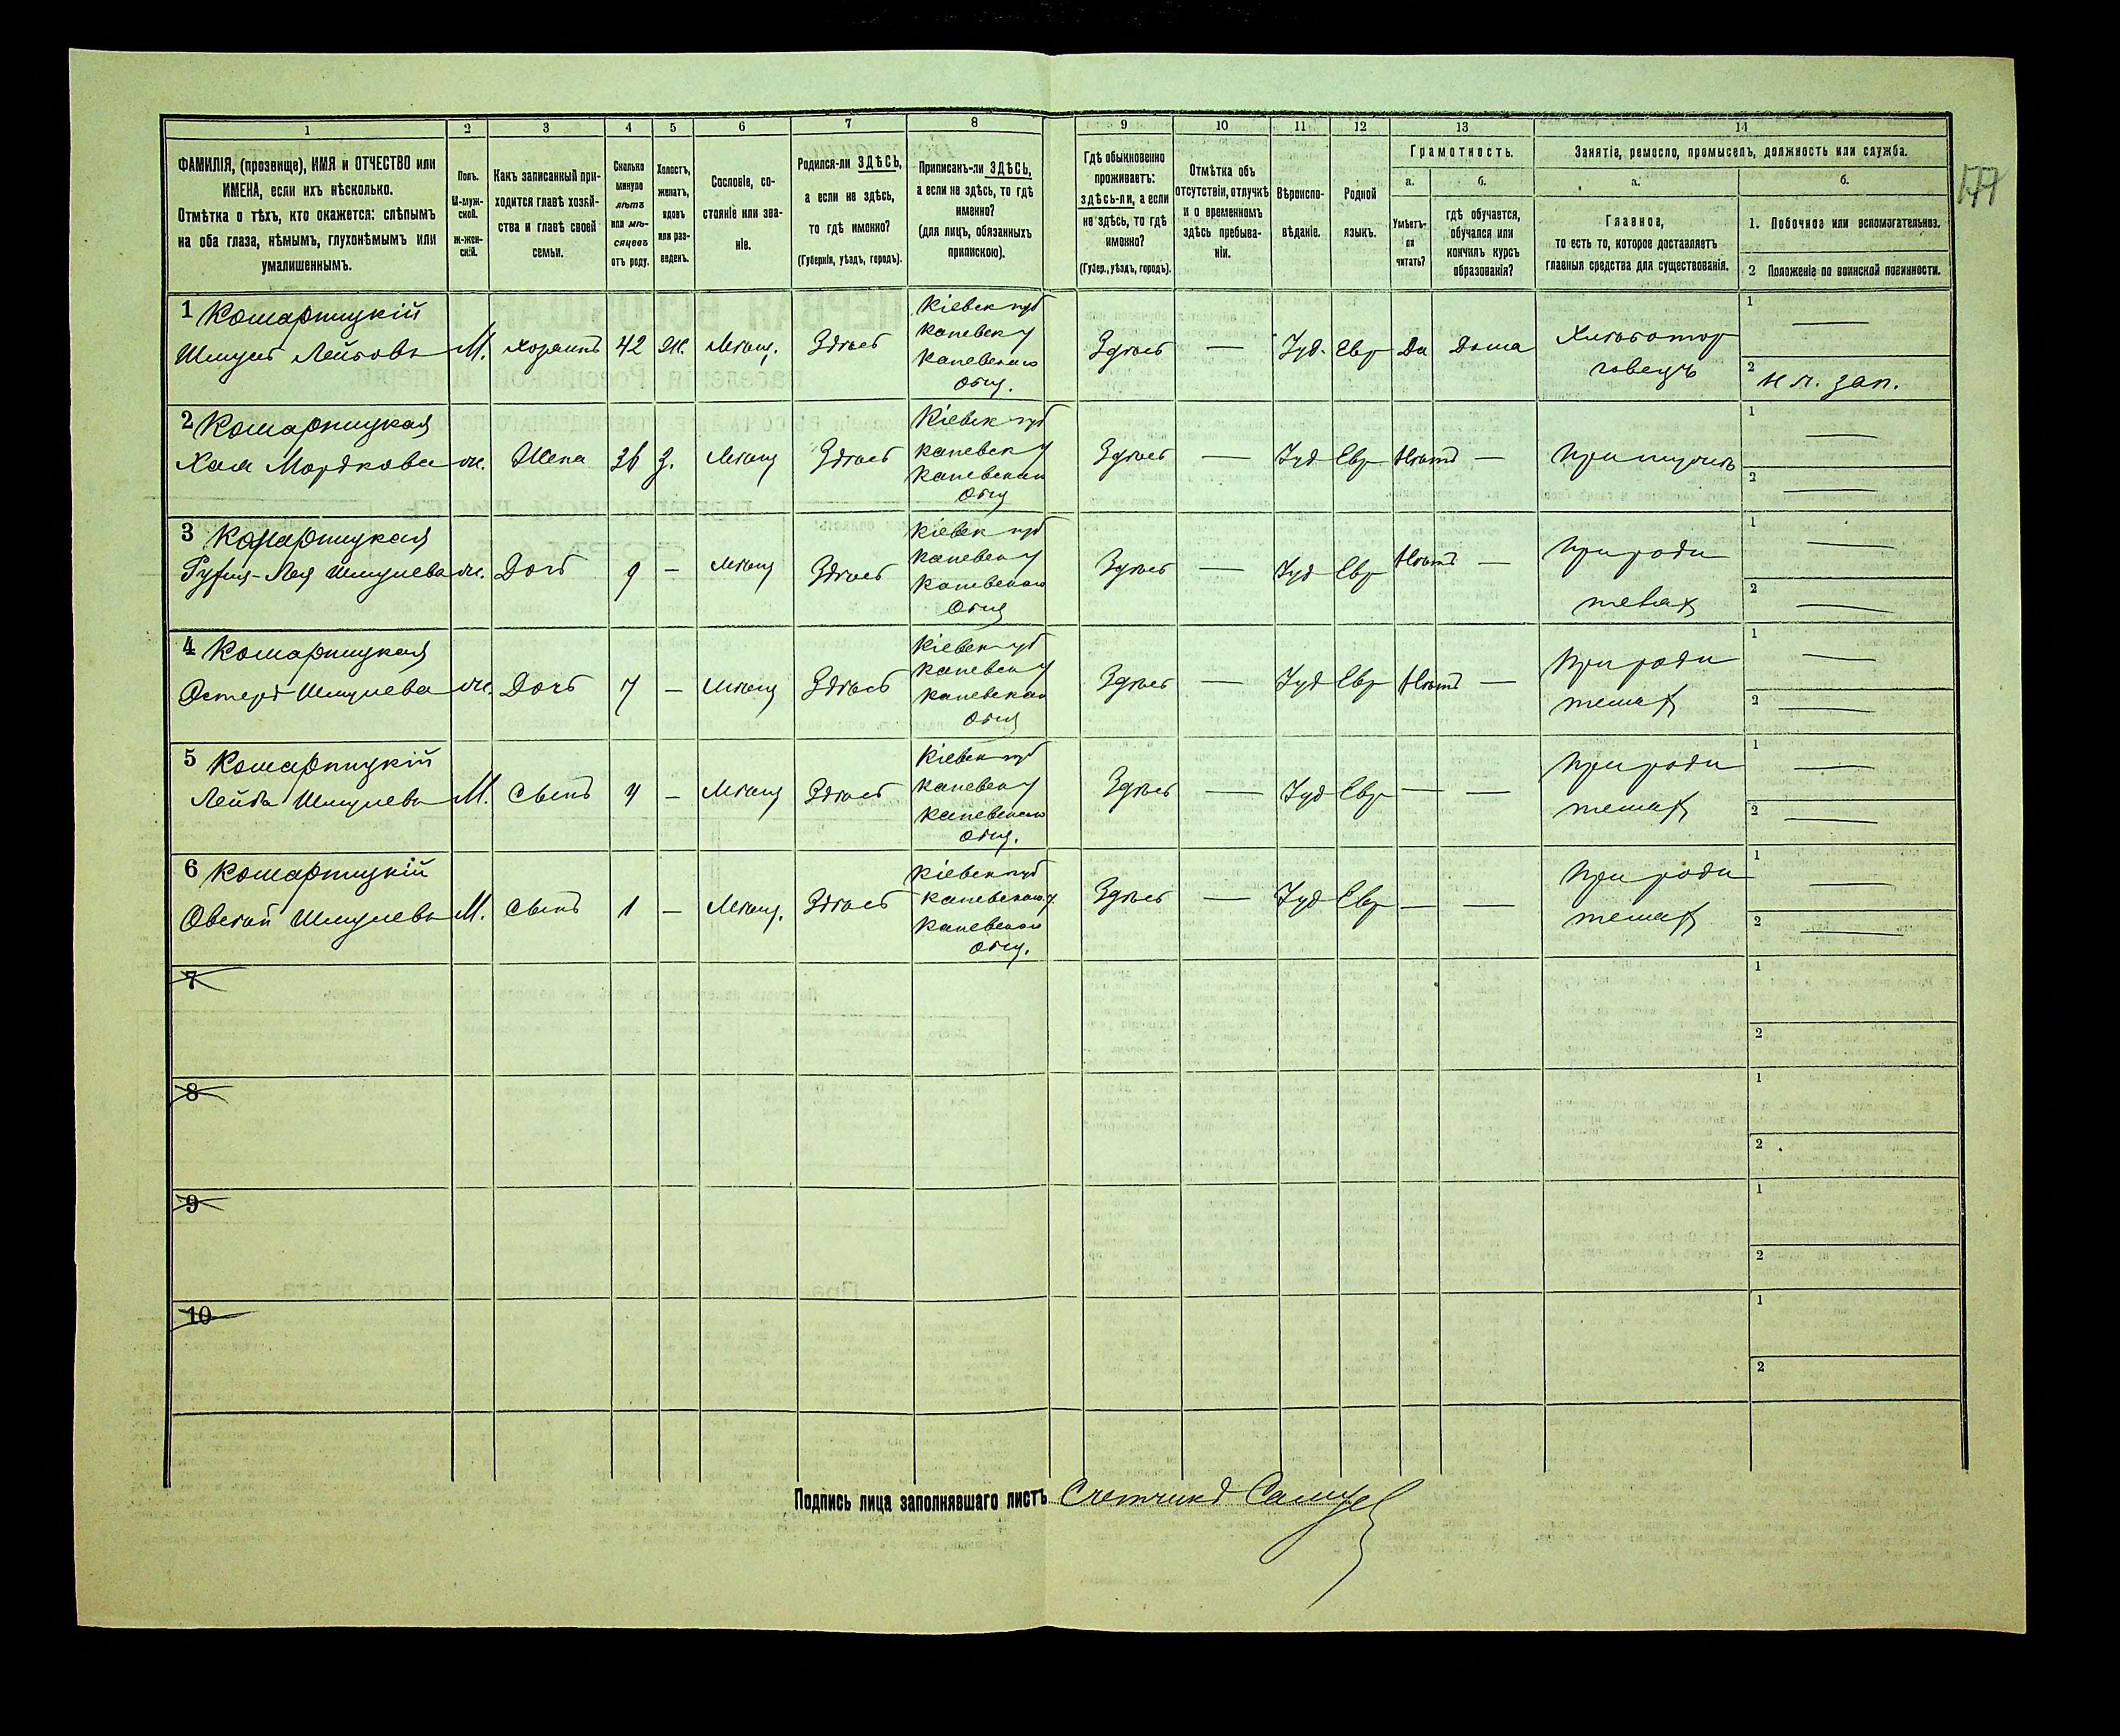 177
1 2 3 4 5 6 7 8 9 10 11 12 13 14
ФАМИЛІЯ, (прозвище), ИМЯ и ОТЧЕСТВО или
ИМЕНА, если ихъ нѣсколько.
Отмѣтка о тѣхъ, кто окажется: слѣпымъ
на оба глаза, нѣмымъ, глухонѣмымъ или
умалишеннымъ.
Полъ.
М-муж-
ской.
ж-жен-
скій.
Какъ записанный при-
ходится главѣ хозяй-
ства и главѣ своей
семьи.
Сколько
минуло
лѣтъ
или мѣ-
сяцевъ
отъ роду.
Холостъ,
женатъ,
вдовъ
или раз-
веденъ.
Сословіе, со-
стояніе или зва-
ніе.
Родился-ли ЗДѢСЬ,
а если не здѣсь,
то гдѣ именно?
(Губернія, уѣздъ, городъ).
Приписанъ-ли ЗДѢСЬ,
а если не здѣсь, то гдѣ
именно?
(для лицъ, обязанныхъ
припискою).
Гдѣ обыкновенно
проживаетъ:
здѣсь-ли, а если
не здѣсь, то гдѣ
именно?
(Губер., уѣздъ, городъ).
Отмѣтка объ
отсутствіи, отлучкѣ
и о временномъ
здѣсь пребыва-
ніи.
Вѣроиспо-
вѣданіе.
Родной
языкъ.
Грамотность.
а. б.
Умѣетъ-
ли
читать?
гдѣ обучается,
обучался или
кончилъ курсъ
образованія?
Занятіе, ремесло, промыселъ, должность или служба.
а. б.
Главное,
то есть то, которое доставляетъ
главныя средства для существованія.
1. Побочное или вспомогательное.
2 Положеніе по воинской повинности.
1 Комарницкій
Шмуль Лейбовъ М. хозяинъ 42 Ж. Мѣщ. Здѣсь
Кіевск губ
каневск у
каневскаго
общ.
Здѣсь — Іуд. Евр Да Дома
Хлѣботор
говецъ
1 —
2 н. п. зап.
2 Комарницкая
Хая Мордкова ж. Жена 36 З. Мѣщ Здѣсь
Кіевск губ
каневск у
каневскаго
общ
Здѣсь — Іуд Евр Нѣтъ — При мужѣ
1 —
2 —
3 Комарницкая
Лея Шмулева ж. Дочь 9 — Мѣщ Здѣсь
Кіевск губ
каневск у
каневскаго
общ
Здѣсь — Іуд Евр Нѣтъ —
При роди
телях
1 —
2 —
4 Комарницкая
Эстеръ Шмулева ж. Дочь 7 — Мѣщ Здѣсь
Кіевск губ
каневск у
каневскаго
общ
Здѣсь — Іуд Евр Нѣтъ —
При роди
телях
1 —
2 —
5 Комарницкій
Лейба Шмулевъ М. Сынъ 4 — Мѣщ Здѣсь
Кіевск губ
каневск у
каневскаго
общ.
Здѣсь — Іуд Евр — —
При роди
телях
1 —
2 —
6 Комарницкій
Шмулевъ М. Сынъ 1 — Мѣщ. Здѣсь
Кіевск губ
каневскаго у.
каневскаго
общ.
Здѣсь — Іуд Евр — —
При роди
телях
1 —
2 —
7
1
2
8
1
2
9
1
2
10
1
2
Подпись лица заполнявшаго листъ Счетчикъ